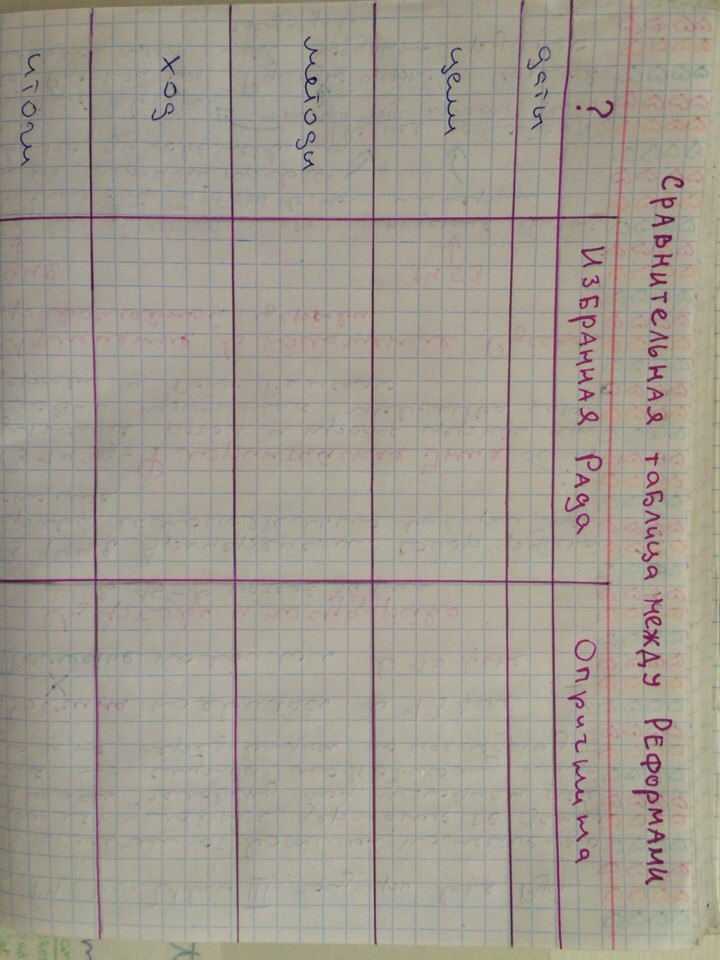 Сравнительная таблица между Реформами
? Избранная Рада Опричнина
даты
цели
методы
ход
итоги